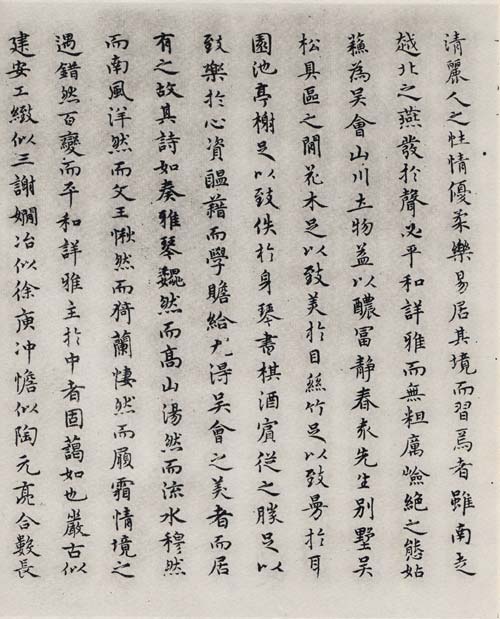 清麗人之性情優柔樂易居其境而習焉者雖南走
越北之燕發於聲必平和詳雅而無粗厲噞絕之態姑
蘓為吳會山川土物益以醲冨靜春袁先生别墅吳
松具區之間花木足以致美於目絲竹足以致曼於耳
園池亭榭足以致佚於身琴書棋酒賓從之勝足以
致樂於心資醞藉而學贍給尤淂吳會之美者而居
有之故其詩如奏雅琴巍然而髙山湯然而流水穆然
而南風洋然而文王愀然而猗蘭悽然而履霜情境之
遇錯然百變而平和詳雅主於中者固藹如也嚴古似
建安工緻似三謝嫺冶似徐庾沖憺似陶元亮合數長